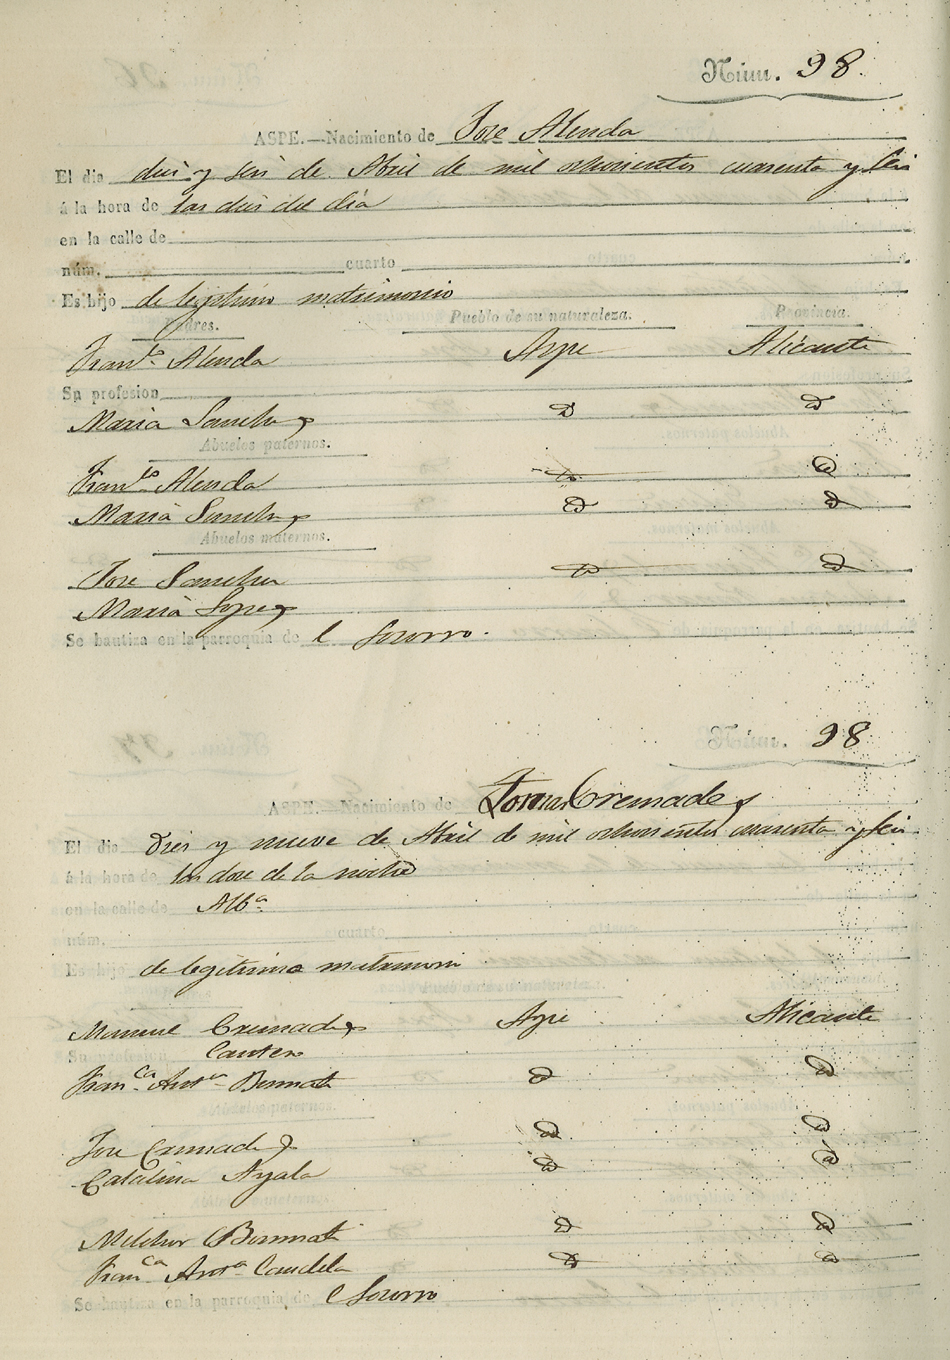 Núm. 98
ASPE.—Nacimiento de Jose Alenda
El dia diez y seis de Abril de mil ochocientos cuarenta y seis
á la hora de las diez del dia
en la calle de
núm. cuarto
Es hijo de legitimo matrimonio
Padres. Pueblo de su naturaleza. Provincia.
Franco. Alenda Aspe Alicante
Su profesion
Maria Sanchez D D
Abuelos paternos.
Franco. Alenda D D
Maria Sanchez D D
Abuelos maternos.
Jose Sanchez D D
Maria Lopez
Se bautiza en la parroquia de l Socorro.
Núm. 98
ASPE.—Nacimiento de Tomas Cremades
El dia Diez y nueve de Abril de mil ochocientos cuarenta y seis
á la hora de las doce de la noche
en la calle de Alba.
núm. cuarto
Es hijo de legitimo matrimoni
Manuel Cremades Aspe Alicante
Su profesion Cantero
Franca. Anta. Bonmati D D
Jose Cremades D D
Catalina Ayala D D
Melchor Bonmati D D
Franca. Anta. Candela D D
Se bautiza en la parroquia de l Socorro